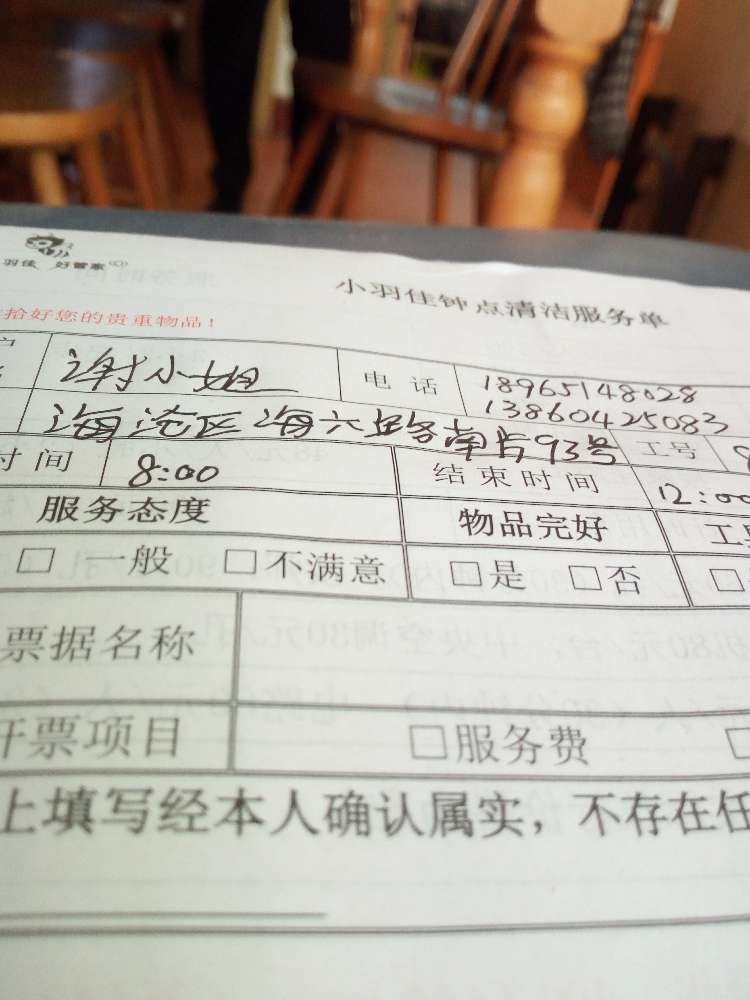 羽佳 好管家
小羽佳钟点清洁服务单
拾好您的贵重物品！
谢小姐 电话 18965148028
13860425083
海沧区海六路南片93号 工号
时间 8:00 结束时间 12:00
服务态度 物品完好
□ 一般 □不满意 □是 □否
票据名称
开票项目 □服务费
上填写经本人确认属实，不存在任